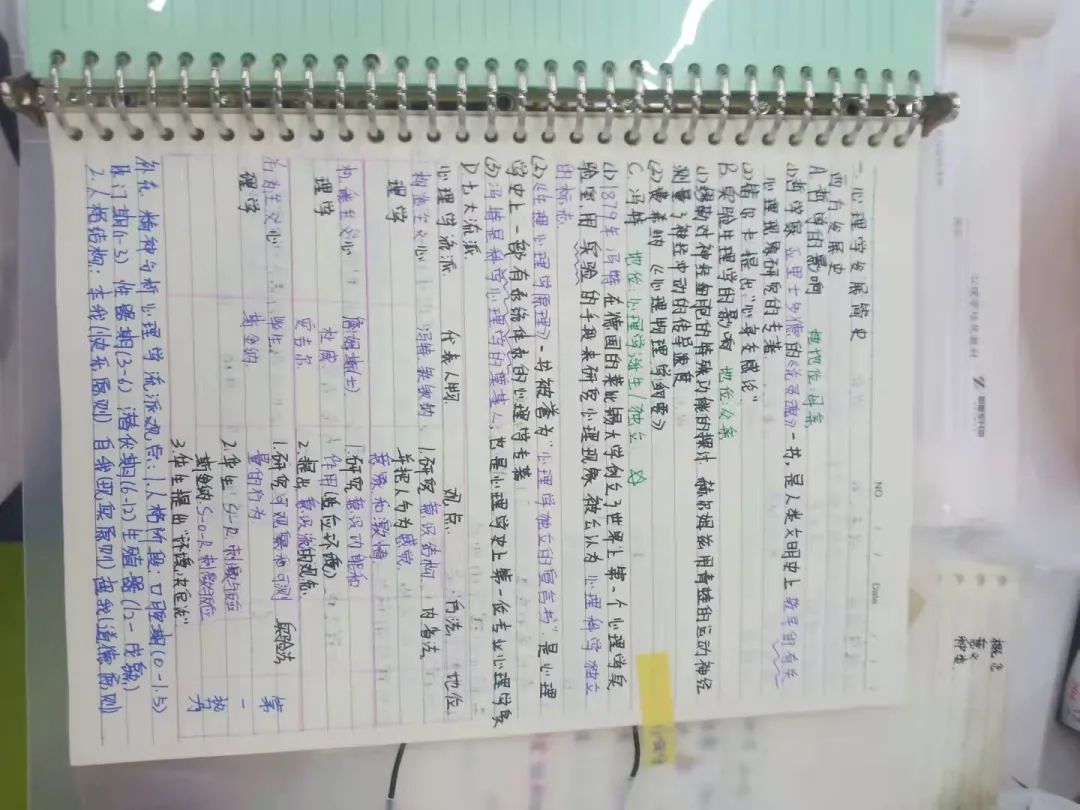 NO.
Date
一、心理学发展简史
西方发展史
A.哲学的影响 地位:母亲
(1)哲学家亚里士多德的《论灵魂》一书,是人类文明史上数字的有关
心理现象研究的专著
(2)笛卡尔提出"心身交感论"
B.实验生理学的影响 地位:父亲
(1)对神经细胞的特殊功能的探讨 赫尔姆运用青蛙的运动神经
测量了神经冲动的传导速度
(2)费希纳《心理物理学纲要》
C.冯特 地位:心理学诞生/独立 ☆
(1)1879年冯特在德国的莱比锡大学创立了世界上第一个心理学实
验室用实验的手段来研究心理现象被公认为心理科学独立
的标志
(2)《生理心理学原理》一书被誉为"心理学独立的宣言书"是心理
学史上一部有系统体系的心理学专著
(3)冯特是科学心理学的奠基人,也是心理学史上第一位专业心理学家
D.七大流派
心理学流派 代表人物 观点 方法 地位
构造主义心理学 冯特 铁钦纳 1.研究意识结构, 内省法
并把人分为感觉
意象和激情
机能主义心理学 詹姆斯(士) 杜威 安吉尔 1.研究意识功能和
作用(适应环境)
2.提出意识流的观念
行为主义心理学 华生 斯金纳 1.研究可观察和可测 实验法 第一势力
量的行为
2.华生:S-R.刺激与反应
斯金纳:S-O-R.刺激反应
3.华生提出"环境决定论"
补充:精神分析心理学流派观点:1.人格阶段:口腔期(0-1.5)
肛门期(1-3) 性器期(3-6) 潜伏期(6-12) 生殖器(12-成龄)
2.人格结构:本我(快乐原则) 自我(现实原则) 超我(道德原则)
概念
意义
种类